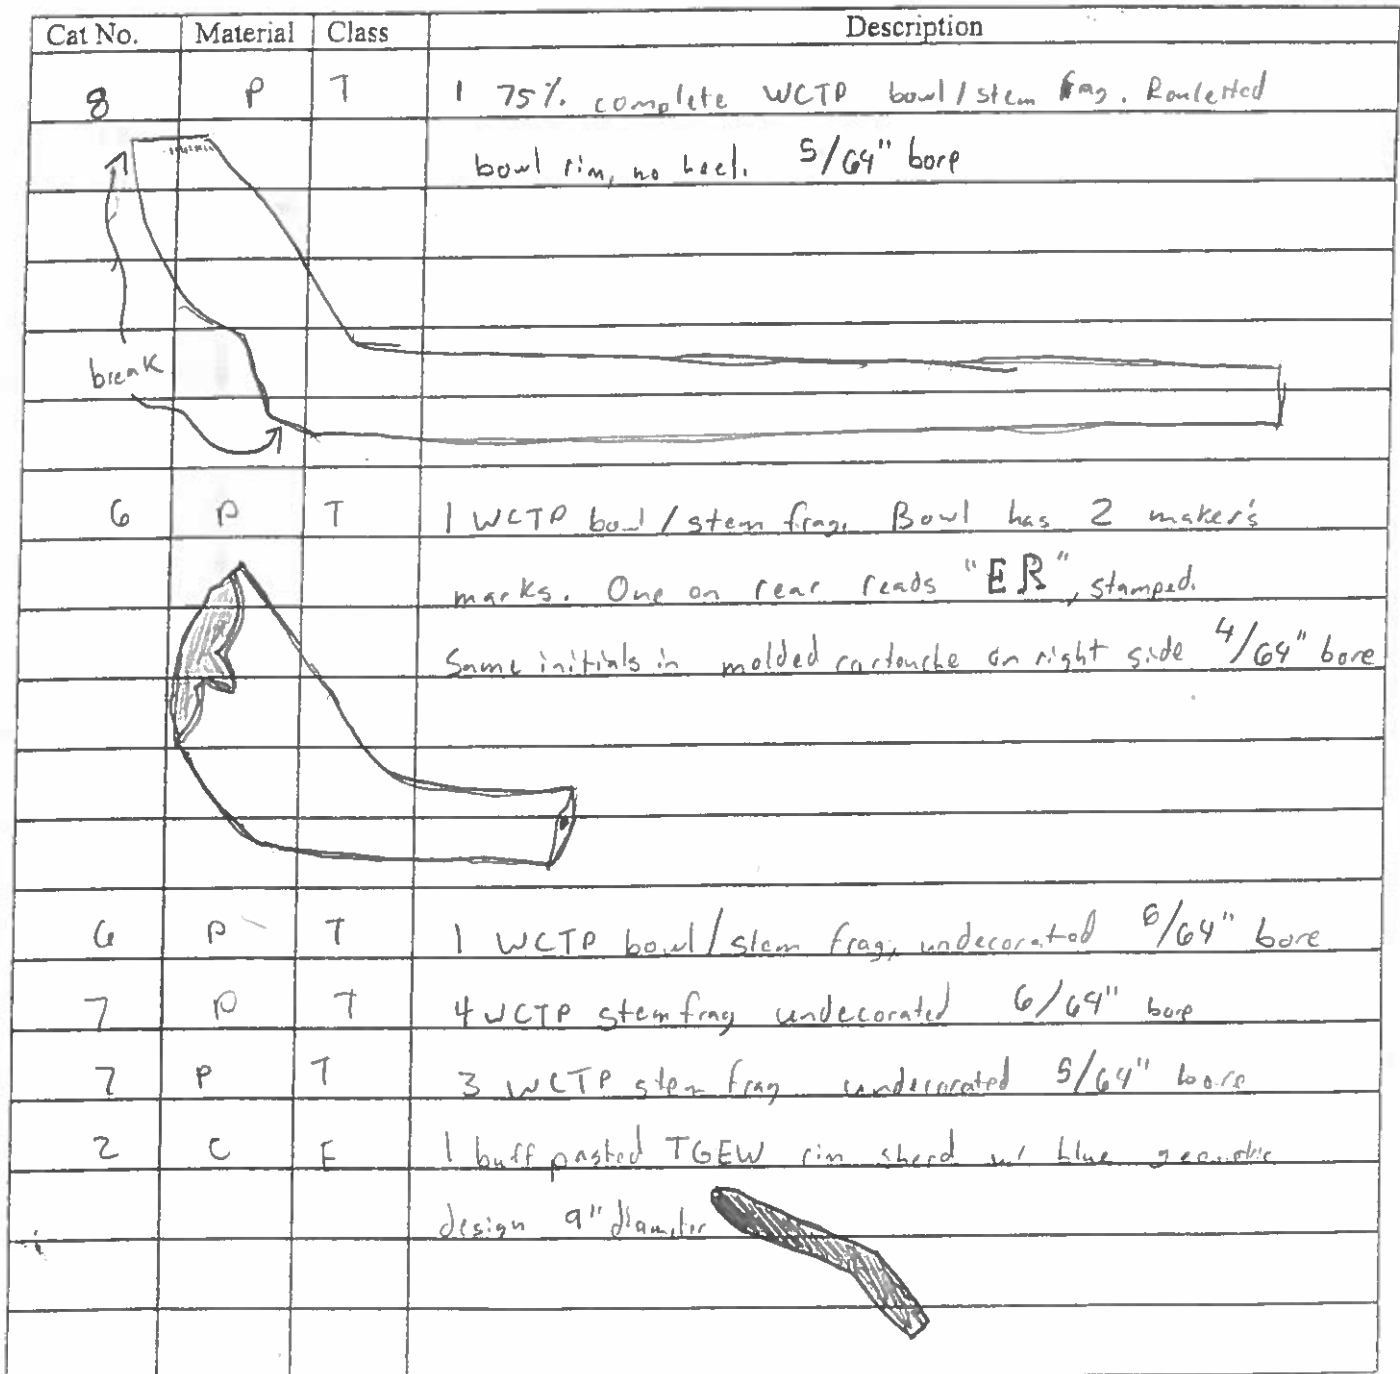 Cat No. Material Class Description
8 P T 1 75% complete WCTP bowl/stem frag. Rouletted
bowl rim, no heel. 5/64" bore
break
6 P T 1 WCTP bowl/stem frag. Bowl has 2 maker's
marks. One on rear reads "ER", stamped.
Same initials in molded cartouche on right side 4/64" bore
6 P T 1 WCTP bowl/stem frag, undecorated /64" bore
7 P T 4 WCTP stem frag undecorated 6/64" bore
7 P T 3 WCTP stem frag undecorated 5/64" bore
2 C E 1 buff pasted TGEW rim sherd w/ blue geometric
design 9" diameter